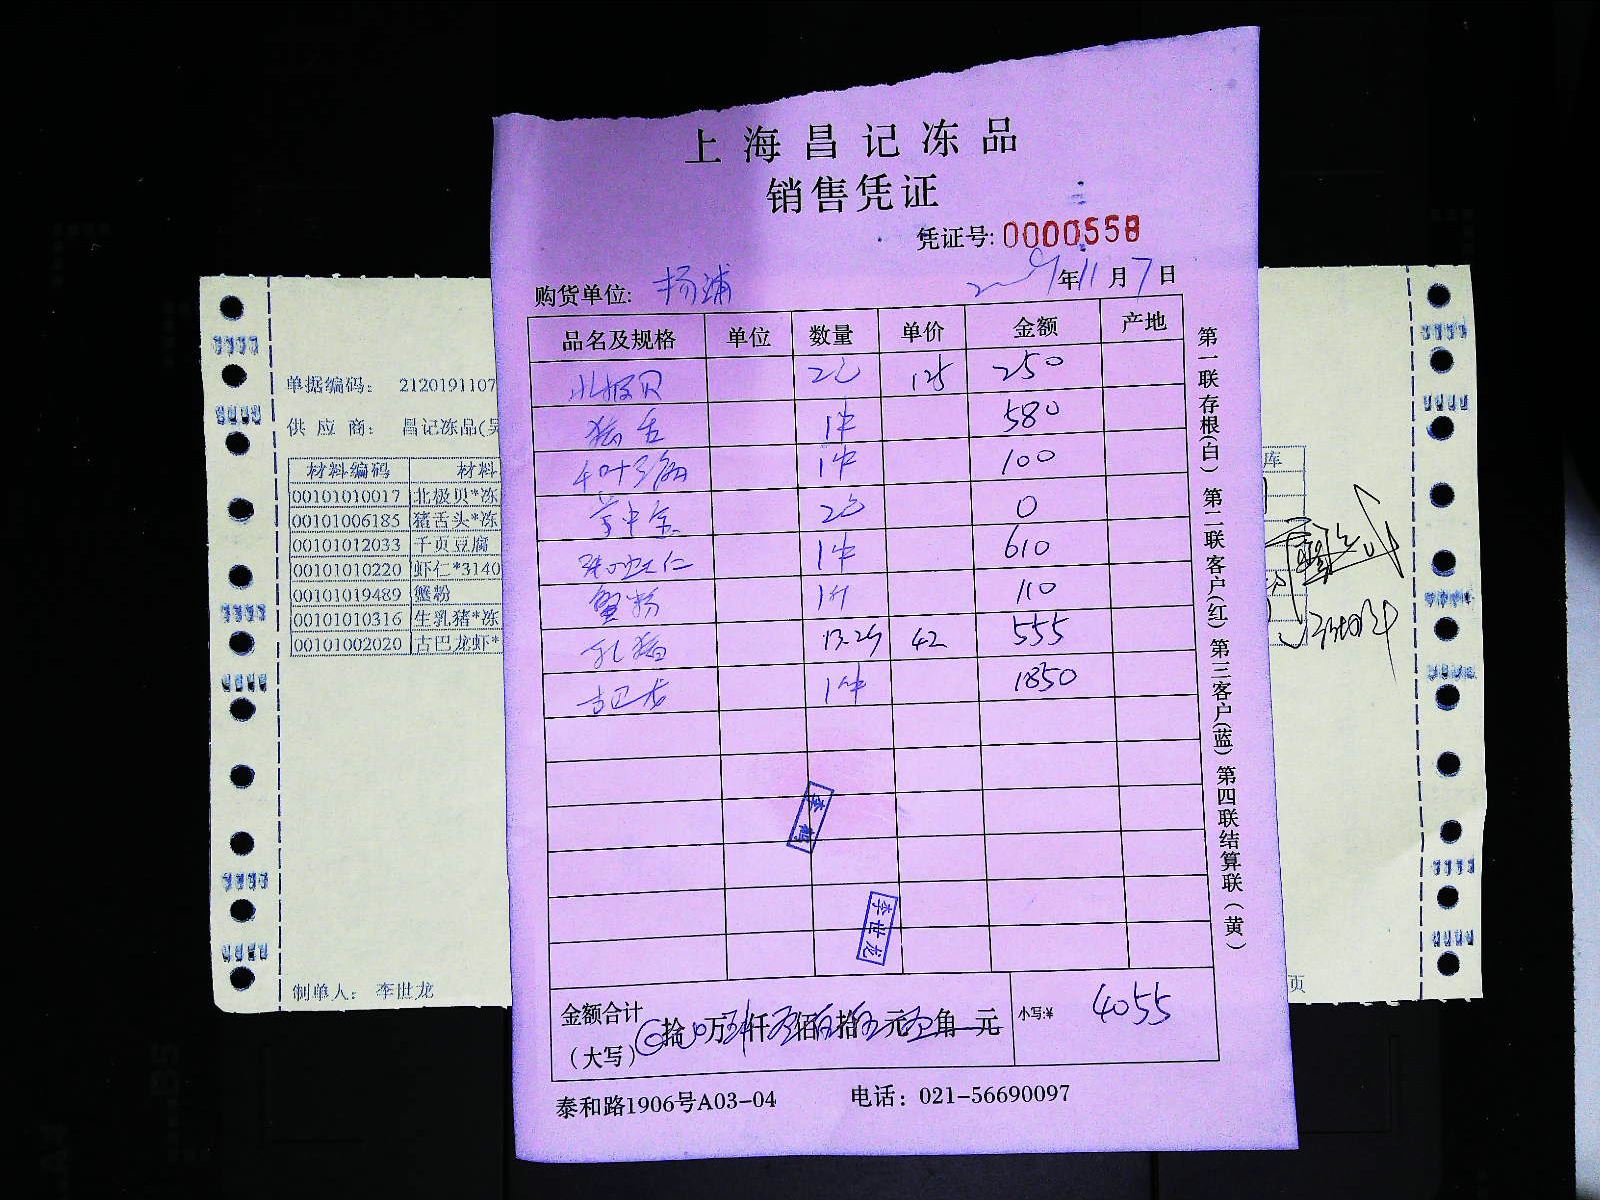 上海昌记冻品
销售凭证
凭证号: 0000558
购货单位: 杨浦 2019年11月7日
品名及规格 单位 数量 单价 金额 产地
北极贝 2包 125 250
猪舌 1件 580
千叶豆腐 1件 100
2包 0
虾仁 1件 610
蟹粉 1斤 110
乳猪 13.2斤 42 555
古巴龙 1件 1850
李鹤
李世龙
金额合计
(大写) 拾 万 仟 佰 拾 元 角 元 小写:¥ 4055
泰和路1906号A03-04 电话: 021-56690097
第一联存根(白) 第二联客户(红) 第三客户(蓝) 第四联结算联(黄)
单据编码: 2120191107
供应商: 昌记冻品(吴
材料编码 材料 库
00101010017 北极贝*冻
00101006185 猪舌头*冻
00101012033 千页豆腐
00101010220 虾仁*3140
00101019489 蟹粉
00101010316 生乳猪*冻
00101002020 古巴龙虾*
制单人: 李世龙 页